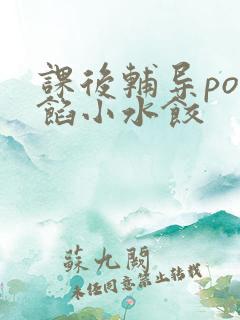 課後輔导po
餡小水餃
蘇九闕
未经同意禁止转载